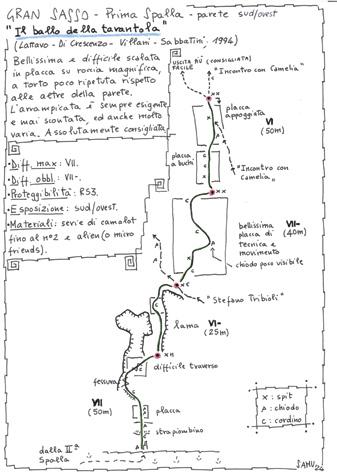 GRAN SASSO - Prima Spalla - parete sud/ovest
"Il ballo della tarantola"
(Lattavo - Di Crescenzo - Villani - Sabbatini. 1994)
Bellissima e difficile scalata
in placca su roccia magnifica,
a torto poco ripetuta rispetto
alle altre della parete.
L'arrampicata è sempre esigente
e mai scontata, ed anche molto
varia. Assolutamente consigliata.
•Diff. max: VII.
•Diff. obbl: VII-.
•Proteggibilità: RS3.
•Esposizione: sud/ovest.
•Materiali: serie di camalot
fino al n°2 e alien (o micro
friends).
USCITA PIÙ (CONSIGLIATA)
FACILE
"Incontro con Camelia"
XX
placca
appoggiata
VI
(50m)
placca
a buchi
"Incontro con
Camelia"
XX
bellissima
placca di
tecnica e
movimento
VII-
(40m)
chiodo poco visibile
"Stefano Tribioli"
lama
VI-
(25m)
difficile traverso
fessura
VII
(50m)
placca
strapiombino
dalla IIª
Spalla
X : spit
A : chiodo
C : cordino